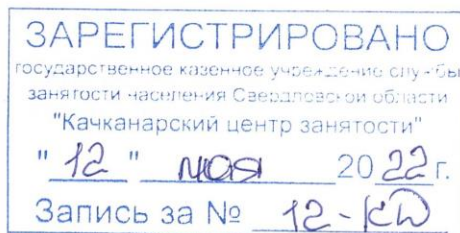 ЗАРЕГИСТРИРОВАНО
государственное казенное учреждение службы
занятости населения Свердловской области
"Качканарский центр занятости"
"12" мая 2022 г.
Запись за № 12-КД